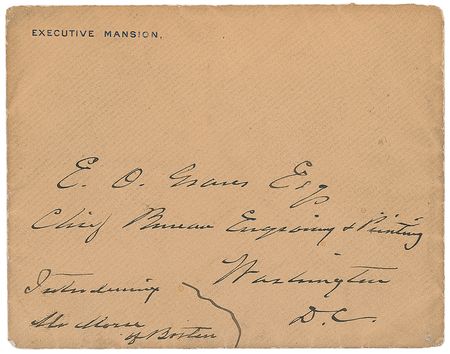 EXECUTIVE MANSION.
E. O. Graves Esq
Chief Bureau Engraving & Printing
Washington
D.C.
Introducing
Mr Morse
of Boston